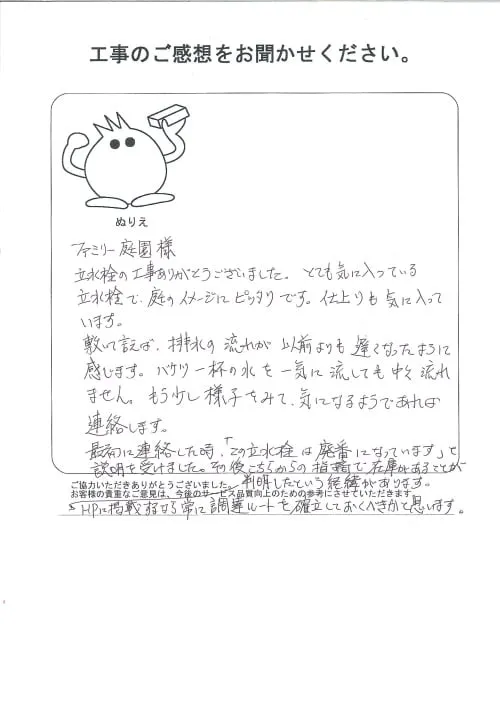 工事のご感想をお聞かせください。
ぬりえ
ファミリー庭園様
立水栓の工事ありがとうございました。とても気に入っている
立水栓で、庭のイメージにピッタリです。仕上りも気に入って
います。
敷いて言えば、排水の流れが以前よりも遅くなったように
感じます。バケツ一杯の水を一気に流しても中々流れ
ません。もう少し様子をみて、気になるようであれば
連絡します。
最初に連絡した時、「この立水栓は廃番になっています」と
説明を受けました。その後こちらからの指摘で在庫があることが
判明したという経緯があります。
ご協力いただきありがとうございました。
お客様の貴重なご意見は、今後のサービス品質向上のための参考にさせていただきます
HPに掲載するなら常に調達ルートを確立しておくべきかと思います。